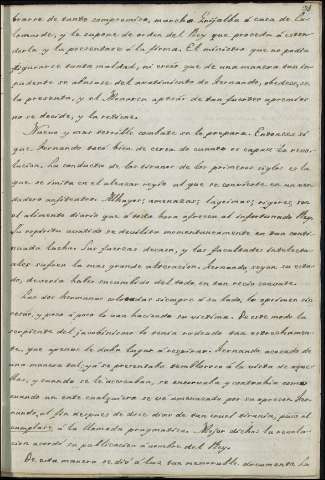 brarse de tanto compromiso, marcha Grijalba á casa de Ca-
lomarde, y le supone de orden del Rey que proceda á esten-
derla y la presentase á la firma. El ministro que no podia
figurarse tanta maldad, ni creer que de una manera tan im-
pudente se abusase del abatimiento de Fernando, obedece, se
la presenta, y el Monarca apesar de tan fuertes apremios
no se decide, y la retiene.
Nuevo y mas terrible combate se le prepara. Entonces sí
que Fernando tocó bien de cerca de cuanto es capaz la revo-
lucion. La conducta de los tiranos de los primeros siglos es la
que se imita en el alcazar regio al que se convierte en un ver-
dadero                . Alhagos, amenazas, lagrimas, rigores, son
el alimento diario que á toda hora ofrecen al infortunado Rey.
Su espiritu           se debilita momentaneamente en tan conti-
nuada lucha. Sus fuerzas decaen, y las facultades intelectu-
ales sufren la mas grande alteracion. Fernando, segun su esta-
do, deveria haber sucumbido del todo en tan recio combate.
Las dos hermanas colocadas siempre á su lado, lo oprimen sin
cesár, y poco á poco lo van haciendo su victima. De este modo la
serpiente del jacobinismo lo tenia rodeado tan estrechamen-
te, que apenas le daba lugar á respirar. Fernando acosado de
una manera tal, yá se presentaba tembloroso á la vista de aque-
llas, y cuando se le acercaban, se encorvaba y contrahia como
cuando un ente cualquiera se vé amenazado por su opresor. Fer-
nando, al fin despues de doce dias de tan cruel tirania, puso el
cumplase á la llamada pragmatica. Mejor dicho: la revolu-
cion acordó su publicacion á nombre del Rey.
De esta manera se dió á luz tan memorable documento. La